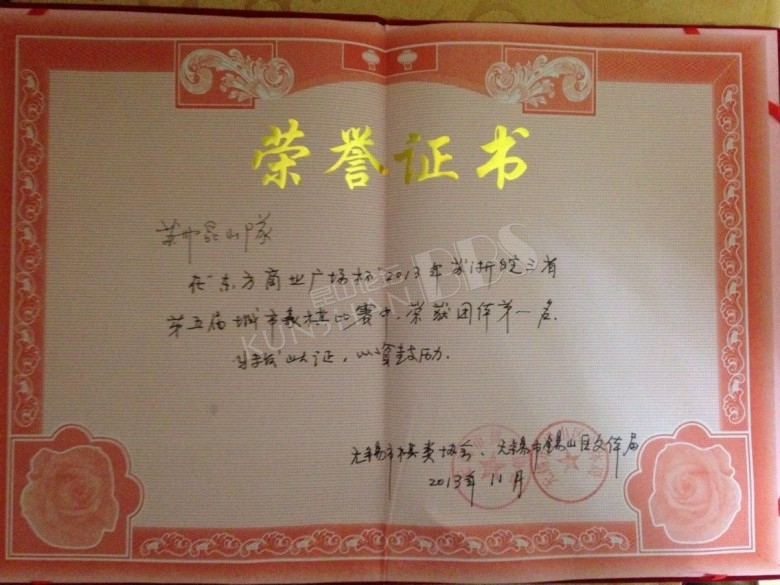 荣誉证书
昆山队
在"东方商业广场杯"2013年苏浙皖三省
第五届城市象棋比赛中,荣获团体第一名.
特发此证,以资鼓励.
无锡市棋类协会、无锡市锡山区文体局
2013年11月
昆山论坛
KUNSHAN BBS